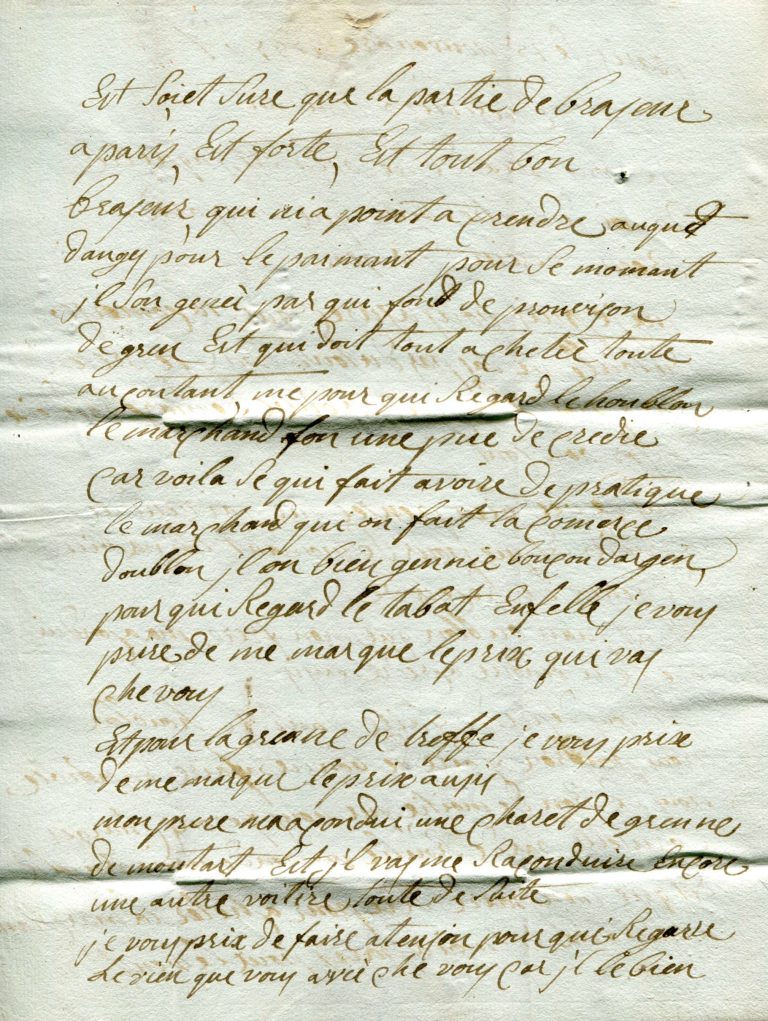 Est Soiet Sure que la partie de brajeur
a parij, Est forte, Est tout bon
brajeur, qui nia point a crendre auqu
dangé pour le parmant pour Se momant
jl Son geneè par qui fond de provijon
de gren Est qui doit tout acheteè toute
au contant me pour qui Regard le houblon
le marchand fon une pue de credie
Car voila Se qui fait avoire de pratique
le marchand qui on fait la Comerce
doublon jl on bien gennie dargen
pour qui Regard le tabat Enfelle je vouj
prire de me marque le prix qui vaj
che vouj
Et pour la grenne de treffe je vouj prix
de me marque le prix aussij
mon prere ma a condui une charet de grenne
de moutart Est jl vaj me Raconduire Encore
une autre voitire toute de Suite
je vouj prix de faire atenjon pour qui Regarre
que vouj aveè che vouj Car jl le bien